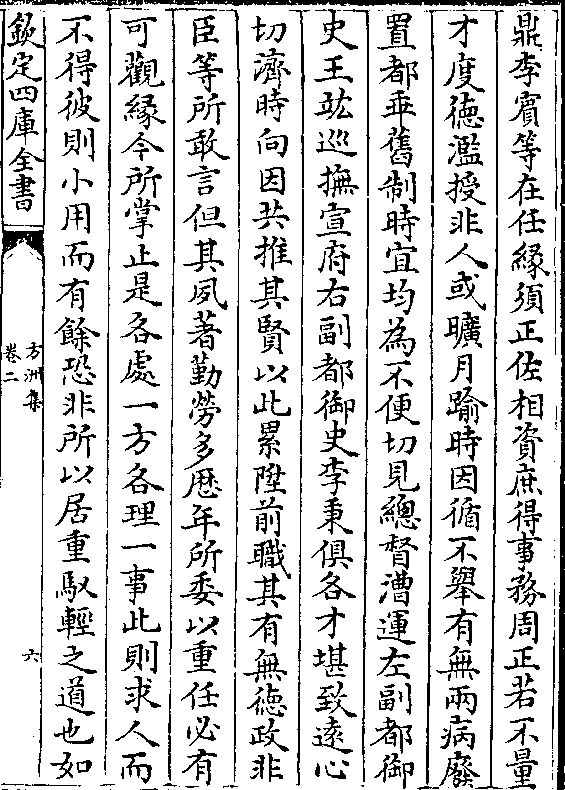 鼎李賔等在任縁須正佐相資庶得事務周正若不量
才度徳濫授非人或曠月踰時因循不舉有無兩病廢
置都乖舊制時宜均為不便切見總督漕運左副都御
史王竑巡撫宣府右副都御史李秉俱各才堪致遠心
切濟時向因共推其賢以此累陞前職其有無徳政非
臣等所敢言但其夙著勤勞多歴年所委以重任必有
可觀縁今所掌止是各處一方各理一事此則求人而
不得彼則小用而有餘恐非所以居重馭輕之道也如
欽定四庫全書
方洲集
卷二
六